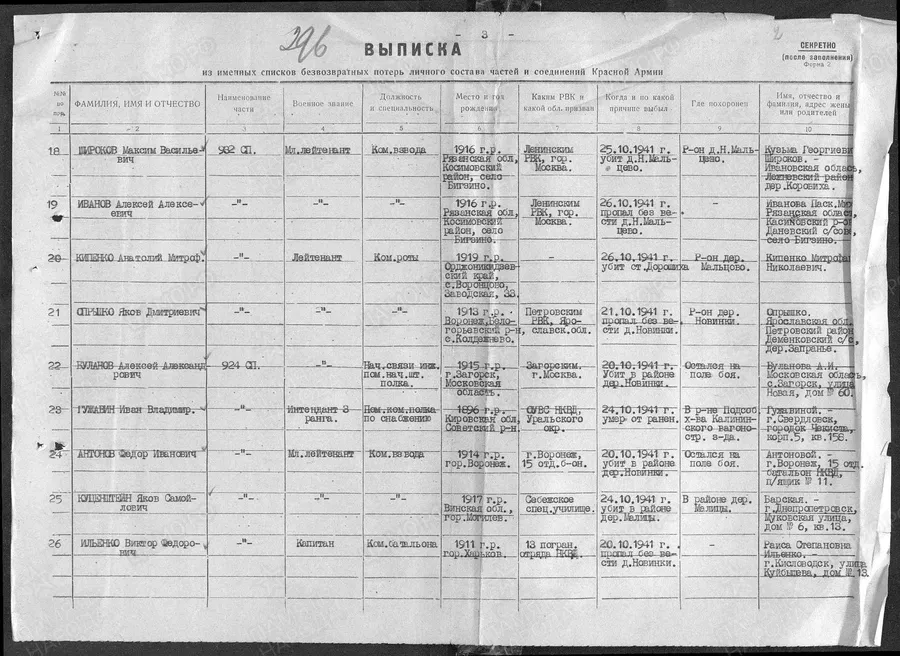 296
- 3 -
2
ВЫПИСКА
СЕКРЕТНО
(после заполнения)
Форма 2
из именных списков безвозвратных потерь личного состава частей и соединений Красной Армии
№№ по пор.
ФАМИЛИЯ, ИМЯ И ОТЧЕСТВО
Наименование части
Военное звание
Должность и специальность
Место и год рождения
Каким РВК и какой обл. призван
Когда и по какой причине выбыл
Где похоронен
Имя, отчество и фамилия, адрес жены или родителей
1 2 3 4 5 6 7 8 9 10
18 ШИРОКОВ Максим Василье- 932 СП. Мл.лейтенант Ком.взвода 1916 г.р. Ленинским 25.10.1941 г. Р-он д.Н.Маль- Кузьма Георгиеви
вич Рязанская обл, РВК, гор. убит д.Н.Маль- цево. Широков. -
Косимовский Москва. цево. Ивановская область,
район, село Лежневский район
Бигзино. дер.Коровиха.
19 ИВАНОВ Алексей Алексе- -"- -"- -"- 1916 г.р. Ленинским 26.10.1941 г. - Иванова Пас.
евич Рязанская обл, РВК, гор. пропал без ве- Рязанская област,
Косимовский Москва. сти д.Н.Маль- Касимовский р-он
район, село цево. Даневский с/сов,
Бигзино. село Бигзино.
20 КИПЕНКО Анатолий Митроф. -"- Лейтенант Ком.роты 1919 г.р. - 26.10.1941 г. Р-он дер. Кипенко Митрофан
Орджоникидзев- убит ст.Дорошиха Мальцово. Николаевич.
ский край,
с.Воронцово,
Заводская, 33.
21 ОПРЫШКО Яков Дмитриевич -"- -"- -"- 1913 г.р. Петровским 21.10.1941 г. Р-он дер. Опрышко.
Воронеж,Бело- РВК, Яро- пропал без ве- Новинки. Ярославская обл.
горьевский р-н, славск.обл. сти д.Новинки. Петровский район
с.Колдежнево. Деменковский с/с,
дер.Запранье.
22 БУЛАНОВ Алексей Александ- 924 СП. -"- Нач.связи инж. 1915 г.р. Загорским. 20.10.1941 г. Остался на Буланова А.И.
рович пом.нач.шт. г.Загорск, г.Москва. Убит в районе поле боя. Московская область,
полка. Московская дер.Новинки. с.Загорск, улица
область. Новая, дом № 60.
23 ГУЖАВИН Иван Владимир. -"- Интендант 3 Пом.ком.полка 1896 г.р. ОУВС НКВД, 24.10.1941 г. В р-не Подсоб Гужавиной. -
ранга. по снабжению Кировская обл, Уральского умер от ранен. х-ва Калинин- г.Свердловск,
Советский р-н. окр. ского вагоно- городок Чекиста,
стр. з-да. корп.5, кв.156.
24 АНТОНОВ Федор Иванович -"- Мл.лейтенант Ком.взвода 1914 г.р. г.Воронеж, 20.10.1941 г. Остался на Антоновой. -
гор.Воронеж. 15 отд.б-он. убит в районе поле боя. г.Воронеж, 15 отд.
дер.Новинки. батальон НКВД,
п/ящик № 11.
25 КУЦЕНШТЕЙН Яков Самой- -"- -"- -"- 1917 г.р. Себежское 24.10.1941 г. В районе дер. Барская. -
лович Винская обл., спец.училище. убит в районе Малицы. г.Днепропетровск,
гор.Могилев. дер.Малицы. Муковская улица,
дом № 6, кв.13.
26 ИЛЬЕНКО Виктор Федоро- -"- Капитан Ком.батальона 1911 г.р. 13 погран. 20.10.1941 г. - Раиса Степановна
вич гор.Харьков. отряда НКВД. пропал без ве- Ильенко. -
сти д.Новинки. г.Кисловодск, улица
Куйбышева, дом № 13.